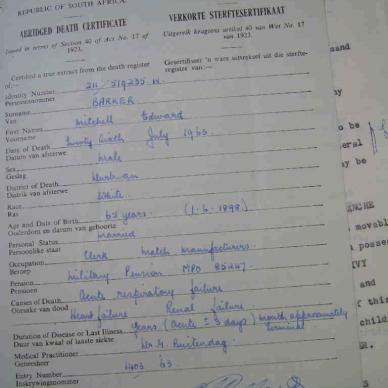 REPUBLIC OF SOUTH AFRICA
ABRIDGED DEATH CERTIFICATE
VERKORTE STERFTESERTIFIKAAT
Issued in terms of Section 40 of Act No. 17 of 1923.
Uitgereik kragtens artikel 40 van Wet No. 17 van 1923.
Certified a true extract from the death register of:—
Gesertifiseer 'n ware uittreksel uit die sterfteregister van:—
Identity Number
Persoonsnommer
Surname BARKER
Van
First Names Mitchell Edward
Voorname
Date of Death July 1963.
Datum van afsterwe
Sex Male
Geslag
District of Death Durban
Distrik van afsterwe
Race White
Ras
Age and Date of Birth 65 years (1.6.1898.)
Ouderdom en datum van geboorte
Personal Status Married
Persoonlike staat
Occupation Clerk match manufacturers.
Beroep
Pension Military Pension MPO 85247.
Pensioen
Causes of Death Acute respiratory failure
Oorsake van dood Heart failure Renal failure.
Duration of Disease or Last Illness Years (Acute ± 3 days) month approximately
Duur van kwaal of laaste siekte terminal
Medical Practitioner Dr
Geneesheer
Entry Number 1403 63
Inskrywingnommer
and
be
eral
ay be
movabl
a posses
IVY
and
f thi
child